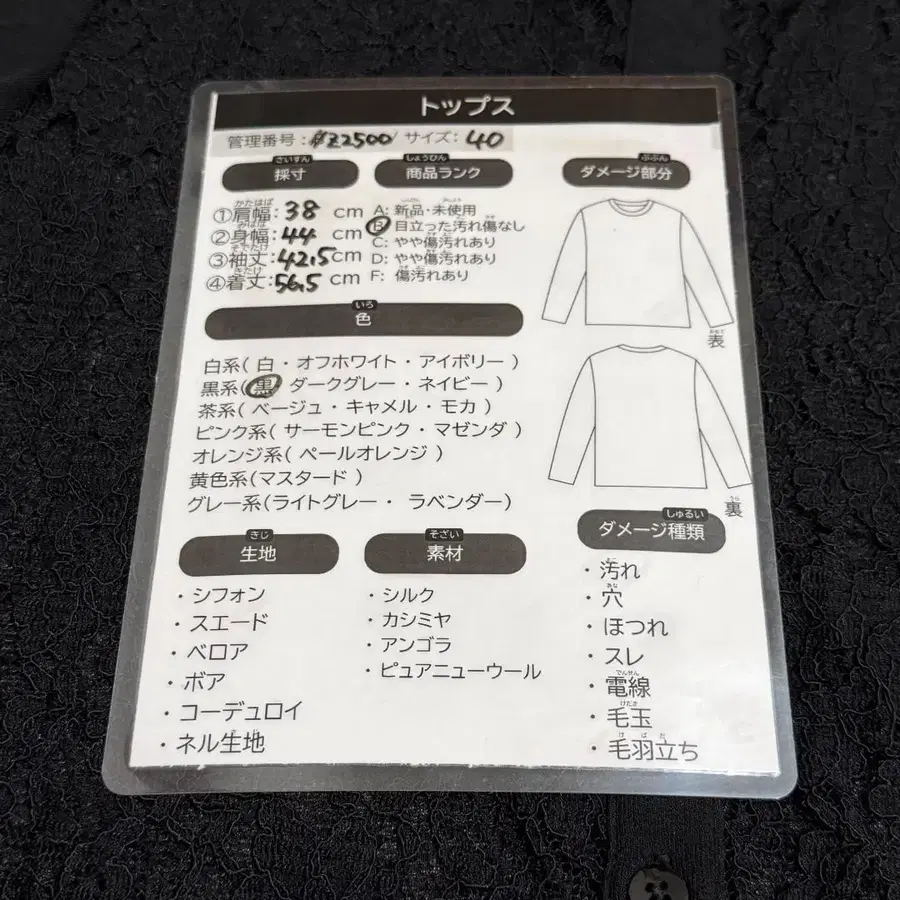 トップス
管理番号:#Z2500/ サイズ: 40
さいすん
採寸
かたはば
①肩幅: 38 cm
みはば
②身幅: 44 cm
そでたけ
③袖丈: 42.5cm
きたけ
④着丈: 56.5 cm
しょうひん
商品ランク
A: 新品・未使用
B: 目立った汚れ傷なし
C: やや傷汚れあり
D: やや傷汚れあり
F: 傷汚れあり
ぶぶん
ダメージ部分
おもて
表
うら
裏
いろ
色
白系( 白・オフホワイト・アイボリー )
黒系( 黒 ダークグレー・ネイビー )
茶系( ベージュ・キャメル・モカ )
ピンク系( サーモンピンク・マゼンダ )
オレンジ系( ペールオレンジ )
黄色系(マスタード )
グレー系(ライトグレー・ ラベンダー)
きじ
生地
・シフォン
・スエード
・ベロア
・ボア
・コーデュロイ
・ネル生地
そざい
素材
・シルク
・カシミヤ
・アンゴラ
・ピュアニューウール
しゅるい
ダメージ種類
・汚れ
あな
・穴
・ほつれ
・スレ
でんせん
・電線
けだま
・毛玉
けばだ
・毛羽立ち